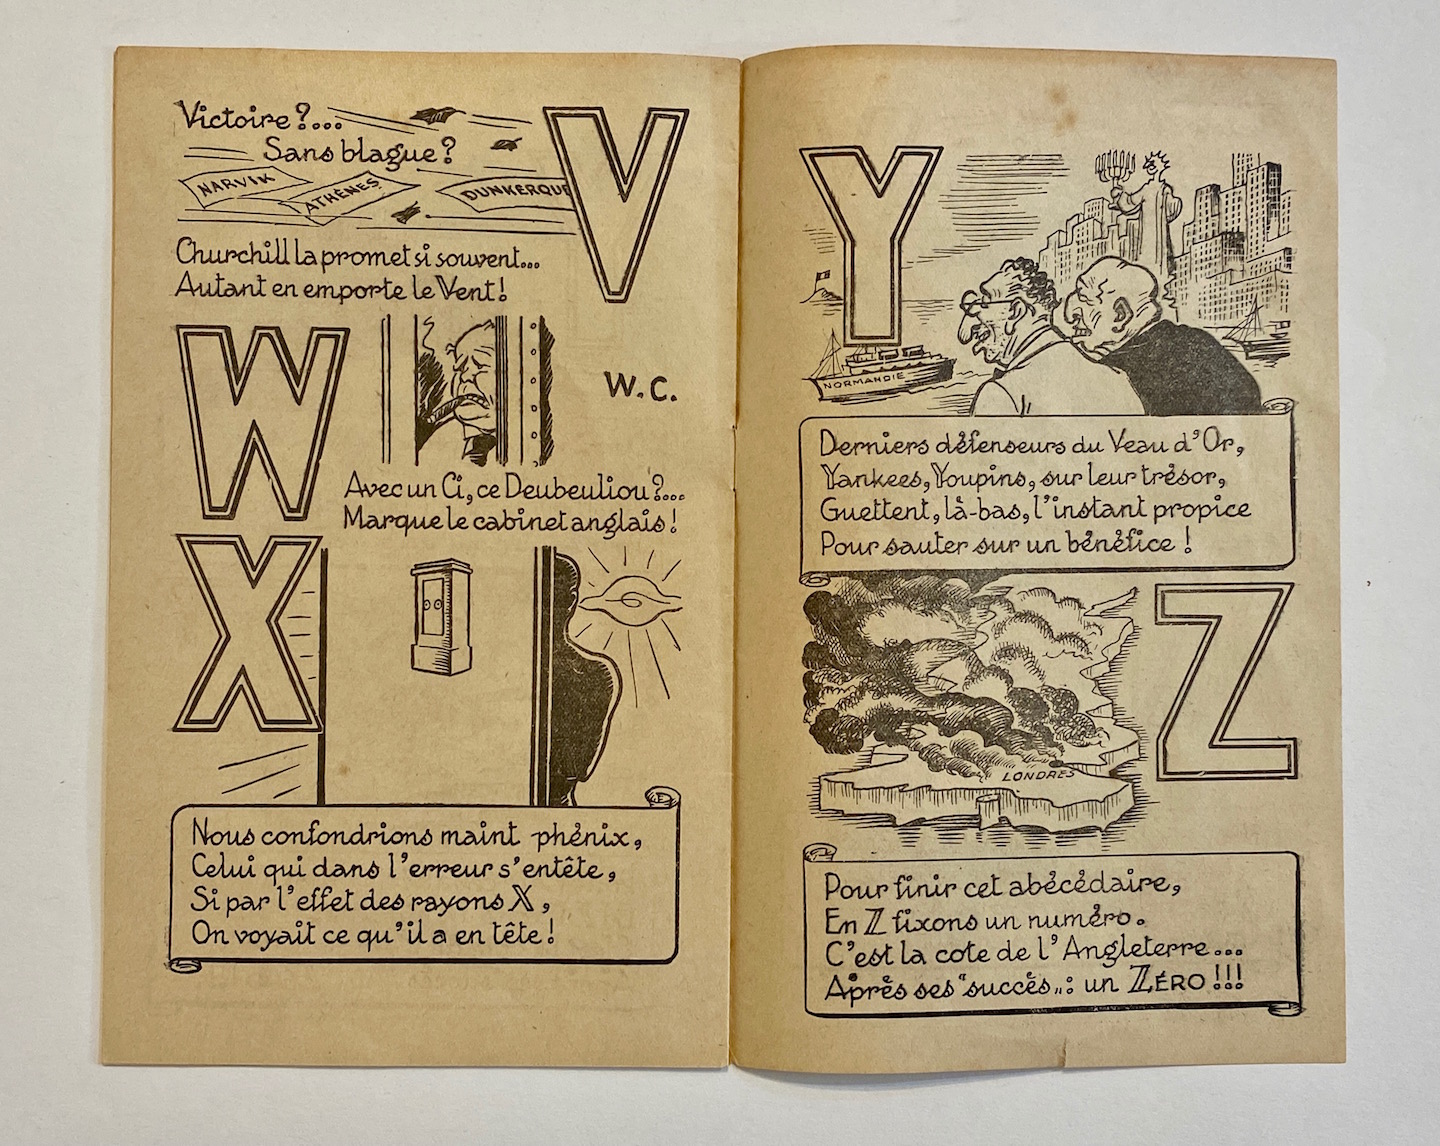 Victoire ?...
Sans blague ?
NARVIK
ATHÈNES
DUNKERQUE
V
Churchill la promet si souvent...
Autant en emporte le Vent !
W
W.C.
Avec un Ci, ce Deubeuliou ?...
Marque le cabinet anglais !
X
Nous confondrions maint phénix,
Celui qui dans l'erreur s'entête,
Si par l'effet des rayons X,
On voyait ce qu'il a en tête !
Y
NORMANDIE
Derniers défenseurs du Veau d'Or,
Yankees, Youpins, sur leur trésor,
Guettent, là-bas, l'instant propice
Pour sauter sur un bénéfice !
Z
LONDRES
Pour finir cet abécédaire,
En Z fixons un numéro.
C'est la cote de l'Angleterre...
Après ses "succès„: un ZÉRO !!!